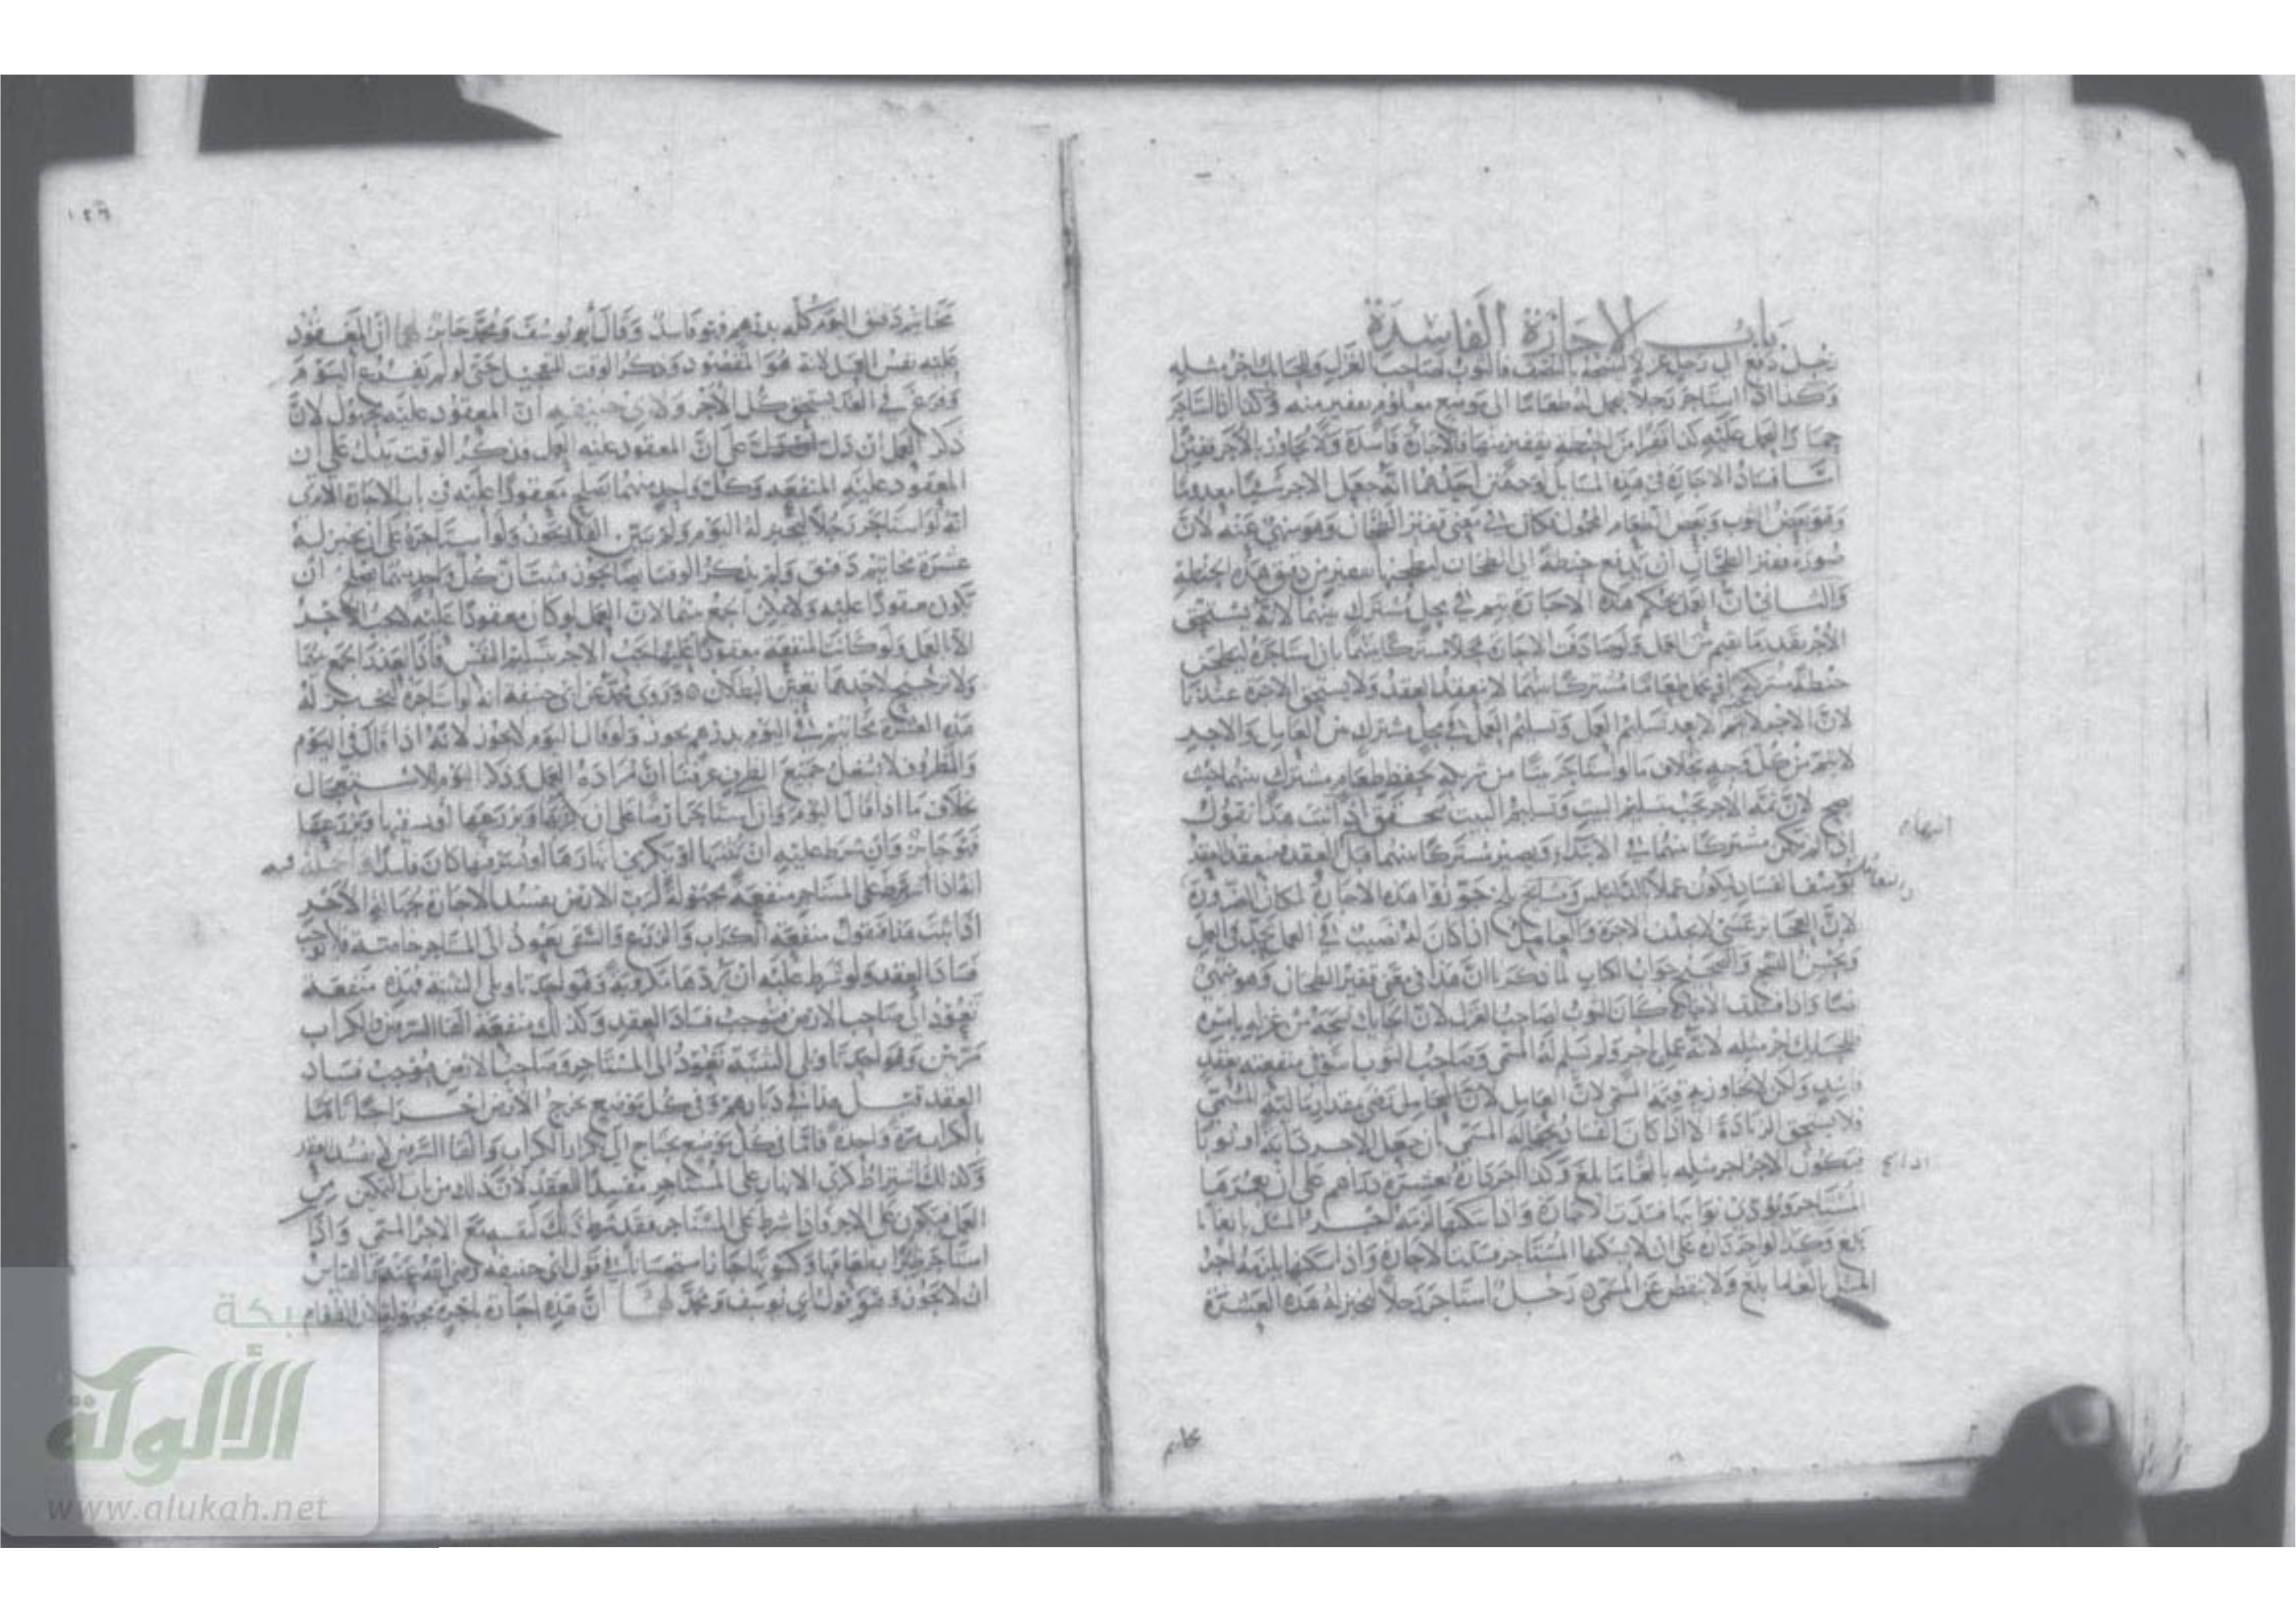 باب الاجازة الفاسدة
رجل دفع الى رجل غزلا لينسجه بالنصف فالثوب لصاحب الغزل وللحايك اجر مثله
وكذا اذا استاجر رجلا يحمل له طعاما الى موضع معلوم بقفيز منه وكذا اذا استاجر
حمارا ليحمل عليه كذا قفيزا من الحنطة بقفيز منها فالاجارة فاسدة ولا يجاوز بالاجر قفيز
اما فساد الاجارة في هذه المسايل لوجهين احدهما انه جعل الاجر شيا معدوما
وهو بعض الثوب وبعض الطعام المحمول فكان في معنى قفيز الطحان وهو منهي عنه لان
صورة قفيز الطحان ان يدفع حنطة الى الطحان ليطحنها بقفيز من دقيق هذه الحنطة
والثاني ان العمل بحكم هذه الاجارة يتم في محل مشترك بينهما لانه يستحق
الاجر بقدر ما يقيم من العمل ولو صادف الاجارة محلا مشتركا بينهما بان استاجره ليطحن
حنطة مشتركة او يحمل طعاما مشتركا بينهما لا ينعقد العقد ولا يستحق الاجرة عندنا
لان الاجر لا يجب الا بعد تسليم العمل وتسليم العمل في محل مشترك من العامل والاجير
لا يتم من كل وجه بخلاف ما لو استاجر بيتا من شريكه ليحفظ طعام مشترك بينهما حيث
يصح لان ثمه الاجر يجب بتسليم البيت وتسليم البيت يتحقق اذا ثبت هذا نقول
اذا لم يكن مشتركا بينهما في الابتداء ويصير مشتركا بينهما قبل العقد فينعقد العقد
بوصف الفساد ليكون عملا بالدليلين ومشايخ بلخ جوزوا هذه الاجارة لمكان الضرورة
لان العجايز عسى لا يجدن الاجرة والعامل اذا كان له نصيب في العمل يجد في العمل
ويحسن النسج والصحيح جواب الكتاب لما ذكرنا ان هذا في معنى قفيز الطحان وهو منهي
كان الثوب لصاحب الغزل لان الحايك نسجه من غزله باذنه
للحايك اجر مثله لانه عمل باجر ولم يسلم له المسمى وصاحب الثوب استوفى منفعته بعقد
فاسد ولكن لا يجاوز به قيمة المسمى لان العامل رضي بمقدار مالية المسمى
ولا يستحق الزيادة الا اذا كان الفساد لجهالة المسمى بان جعل الاجر دابة او ثوبا
فيكون الاجر اجر مثله بالغا ما بلغ وكذا اجر داره بعشرة دراهم على ان يعمرها
المستاجر ويودى نوايبها فسدت الاجارة واذا سكنها لزمه اجر المثل بالغا ما
بلغ وكذا لو اجر داره على ان لا يسكنها المستاجر فسدت الاجارة واذا سكنها يلزمه اجر
المثل بالغا ما بلغ ولا ينقص عن المسمى رجل استاجر رجلا ليخبز له هذه العشرة
اذا لم
مخاتيم
١٤٦
مخاتيم دقيق اليوم كله بدرهم فهو فاسد وقال ابو يوسف ومحمد جايز لهما ان المعقود
عليه نفس العمل لانه هو المقصود وذكر الوقت للتعجيل حتى لو لم يفرغ اليوم
وفرغ في الغد يستحق كل الاجر ولابي حنيفه ان المعقود عليه مجهول لان
ذكر العمل ان دل على ان المعقود عليه العمل فذكر الوقت يدل على ان
المعقود عليه المنفعه وكل واحد منهما يصلح معقودا عليه في باب الاجارة الا ترى
انه لو استاجر رجلا ليخبز له اليوم ولم يبين العمل يجوز ولو استاجره على ان يخبز له
عشرة مخاتيم دقيق ولم يذكر الوقت ايضا يجوز فبان كل واحد منهما يصلح ان
يكون معقودا عليه ولا يمكن الجمع بينهما لان العمل لو كان معقودا عليه لا يجب الاجر
الا بالعمل ولو كانت المنفعه معقودا عليها يجب الاجر بتسليم النفس فاذا تعذر الجمع بينهما
ولا ترجيح لاحدهما تعين البطلان وروى محمد عن ابي حنيفة انه لو استاجره ليخبز له
هذه العشرة مخاتيم في اليوم بدرهم يجوز ولو قال اليوم لا يجوز لانه اذا قال في اليوم
والمظروف لا يشغل جميع الظرف عرفنا ان مراده العمل وذكر اليوم للاستعجال
بخلاف ما اذا قال اليوم وان استاجر ارضا على ان يكربها ويزرعها او يسقيها ويزرعها
فهو جايز وان شرط عليه ان يثنيها او يكري انهارها او يسرقنها كان فاسدا اصله فيه
انه اذا شرط على المستاجر منفعة مجهولة لرب الارض يفسد الاجارة لجهالة الاجر
اذا ثبت هذا فنقول منفعه الكراب والزرع والسقي يعود الى المستاجر خاصة فلا يوجب
فساد العقد ولو شرط عليه ان يردها مكروبة وهو احد تاويلي التثنية فهذه منفعة
تعود الى صاحب الارض فيوجب فساد العقد وكذلك منفعة القا السرقين والكراب
مرتين وهو احد تاويلي التثنية تعود الى المستاجر وصاحب الارض فيوجب فساد
العقد قيل هذا في ديارهم وفي كل موضع يخرج الارض اخراجا تاما
بالكراب مرة واحدة فاما في كل موضع يحتاج الى تكرار الكراب والقا السرقين لا يفسد العقد
وكذلك اشتراط كري الانهار على المستاجر مفسدا للعقد لان ذلك من باب التمكين من
العمل فيكون على الاجر فاذا شرط على المستاجر فقد شرط ذلك لنفسه مع الاجر المسمى واذا
استاجر ظيرا بطعامها وكسوتها جاز استحسانا في قول ابي حنيفه رضي الله عنه والقياس
ان لا يجوز وهو قول ابي يوسف ومحمد لهما ان هذه اجارة باجرة مجهولة لان الطعام
شبكة
الألوكة
www.alukah.net